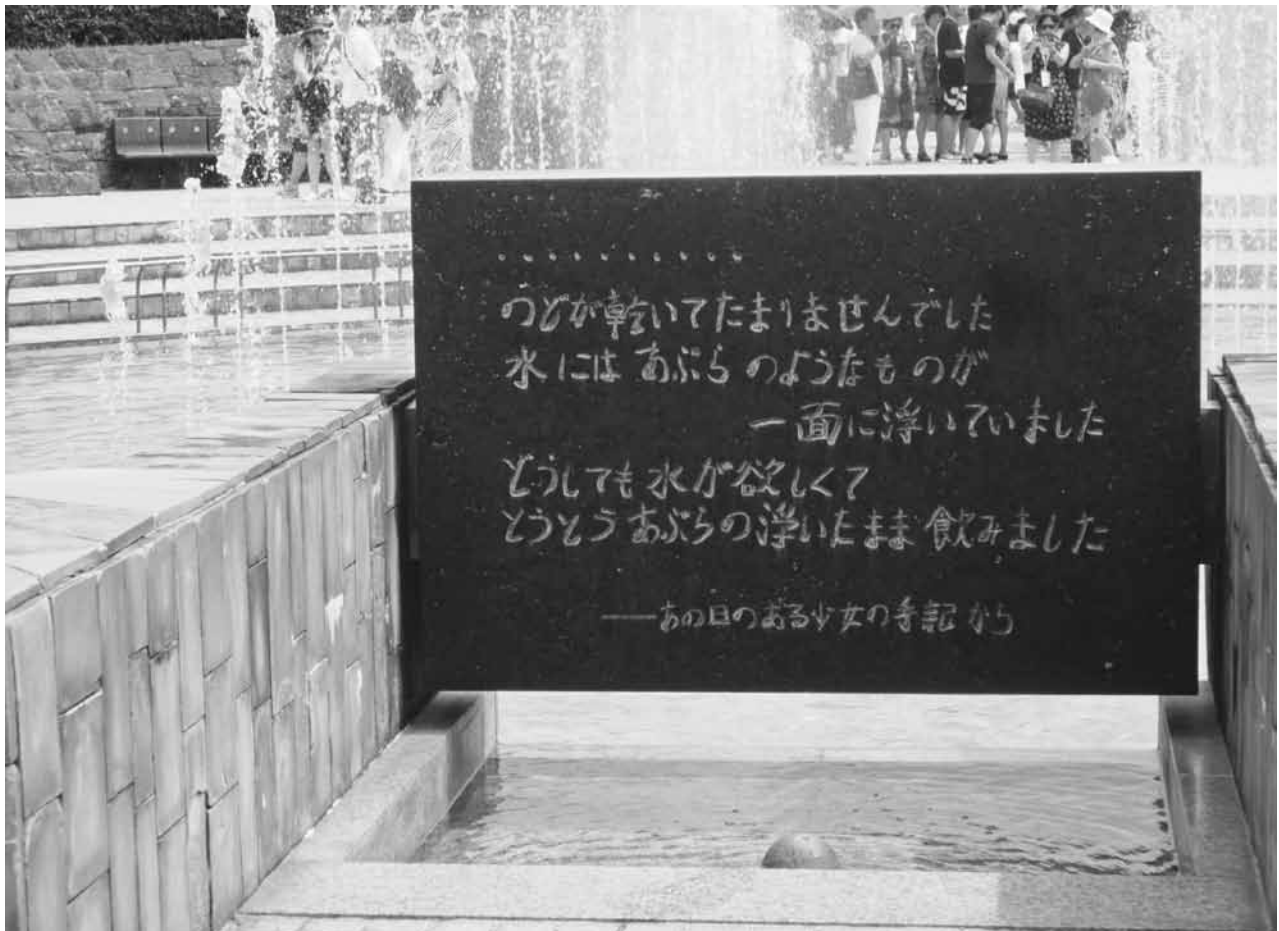 ・・・・・・・・・・
のどが乾いてたまりませんでした
水には あぶら のようなものが
一面に浮いていました
どうしても 水が欲しくて
とうとう あぶらの浮いたまま 飲みました
——あの日のある少女の手記から